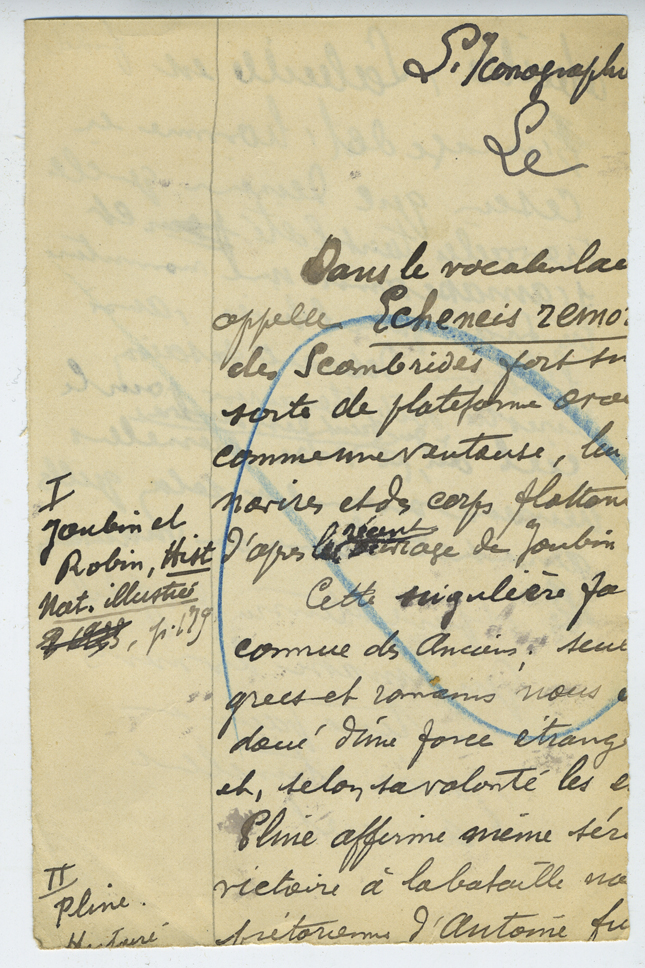 L'Iconographi
Le
Dans le vocabulai
appelle Echeneis remo
des Scombridés fort
sorte de plateforme
comme une ventouse,
navires et des corps flottan
d'après le récent ouvrage de Joubin
Cette singulière fa
connue des Anciens;
grecs et romains nous
doué d'une force étrang
et, selon sa volonté les
Pline affirme même
victoire à la bataille
prétorienne d'Antoine fu
I
Joubin et
Robin, Hist
Nat. illustrée
, p. 179
II
Pline.